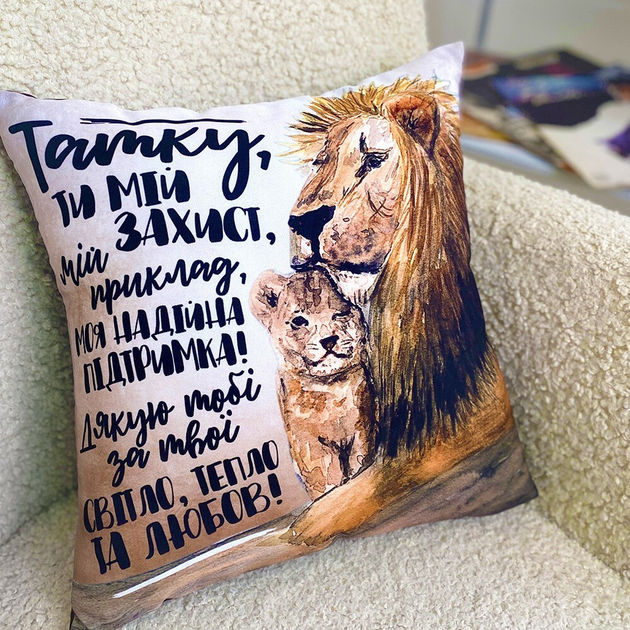 Татку,
ТИ МІЙ
ЗАХИСТ,
мій
приклад,
МОЯ НАДІЙНА
ПІДТРИМКА!
Дякую тобі
за твої
СВІТЛО, ТЕПЛО
ТА ЛЮБОВ!